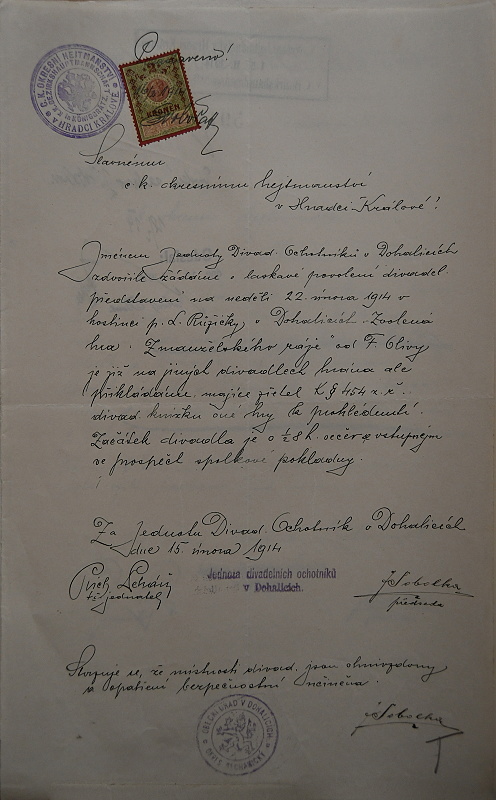 C.K. OKRESNÍ HEJTMANSTVÍ
V HRADCI KRÁLOVÉ
KRONEN
Slavnému
c. k. okresnímu hejtmanství
v Hradci Králové!
Jménem Jednoty Divad. Ochotníků v Dohalicích
zdvořile žádáme o laskavé povolení divadel.
představení na neděli 22. února 1914 v
hostinci p. L. Růžičky v Dohalicích. Zvolená
hra "Z manželského ráje" od F. Olivy
je již na jiných divadlech hrána ale
přikládáme majíce zřetel k § 454 z. ř.
divad knížku oné hry k prohlédnutí.
Začátek divadla je o ½8 h. večer vstupným
ve prospěch spolkové pokladny.
Za Jednotu Divad. Ochotník v Dohalicích
dne 15. února 1914
Jednota divadelních ochotníků
v Dohalicích.
jednatel
J Sobotka
předseda
se, že místnosti divad. jsou
a opatření bezpečnostní učiněna.
J Sobotka
OBECNÍ ÚŘAD V DOHALICÍCH